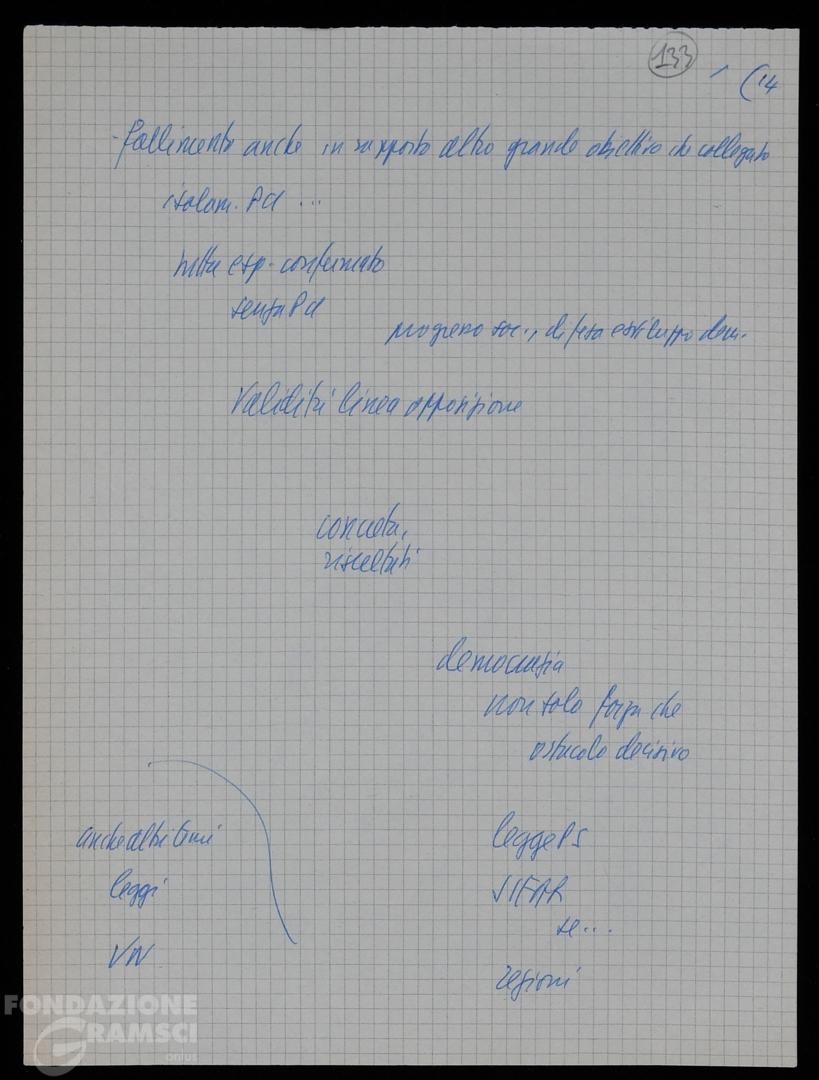 133
(14
- fallimento anche in rapporto altro grande obiettivo che collegato
isolam. PCI ...
tutta esp. confermato
senza PCI
progresso soc., difesa e sviluppo dem.
Validità linea opposizione
concreta,
risultati
democrazia
non solo forza che
ostacolo decisivo
anche altri temi
leggi
VN
legge PS
SIFAR
se...
regioni
FONDAZIONE
GRAMSCI
onlus